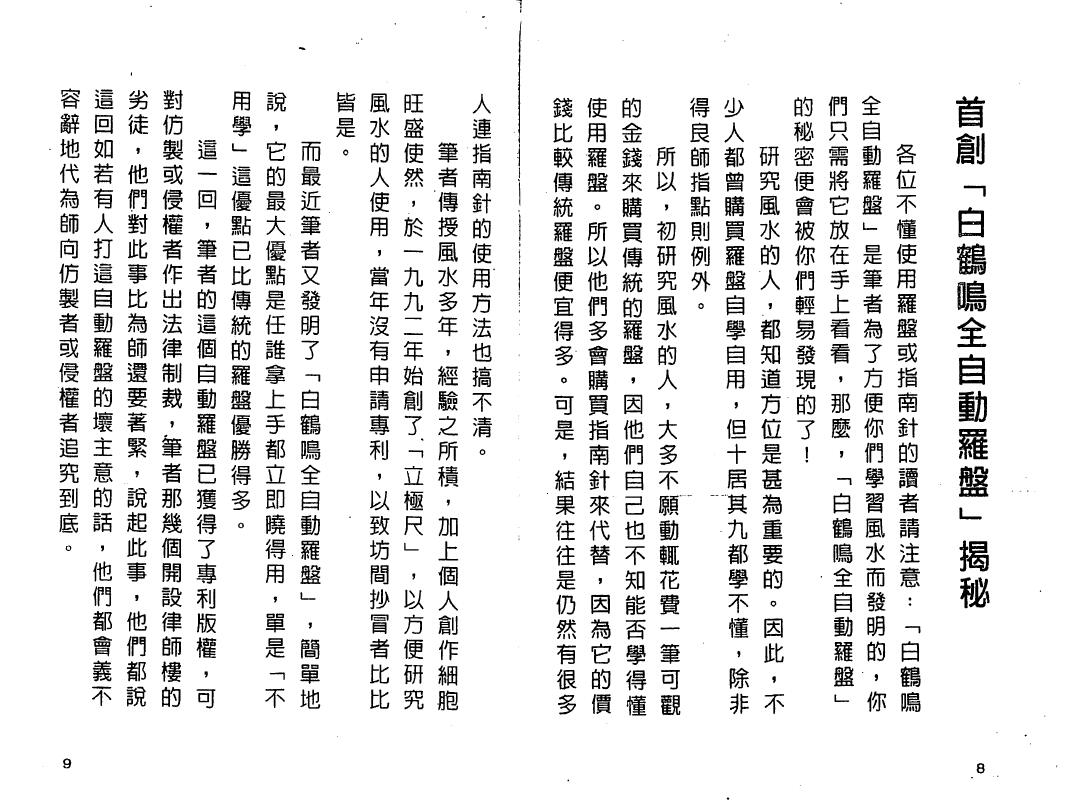 首創「白鶴鳴全自動羅盤」揭秘
各位不懂使用羅盤或指南針的讀者請注意：「白鶴鳴
全自動羅盤」是筆者為了方便你們學習風水而發明的，你
們只需將它放在手上看看，那麼，「白鶴鳴全自動羅盤」
的秘密便會被你們輕易發現的了！
研究風水的人，都知道方位是甚為重要的。因此，不
少人都曾購買羅盤自學自用，但十居其九都學不懂，除非
得良師指點則例外。
所以，初研究風水的人，大多不願動輒花費一筆可觀
的金錢來購買傳統的羅盤，因他們自己也不知能否學得懂
使用羅盤。所以他們多會購買指南針來代替，因為它的價
錢比較傳統羅盤便宜得多。可是，結果往往是仍然有很多
8
人連指南針的使用方法也搞不清。
筆者傳授風水多年，經驗之所積，加上個人創作細胞
旺盛使然，於一九九二年始創了「立極尺」，以方便研究
風水的人使用，當年沒有申請專利，以致坊間抄冒者比比
皆是。
而最近筆者又發明了「白鶴鳴全自動羅盤」，簡單地
說，它的最大優點是任誰拿上手都立即曉得用，單是「不
用學」這優點已比傳統的羅盤優勝得多。
這一回，筆者的這個自動羅盤已獲得了專利版權，可
對仿製或侵權者作出法律制裁，筆者那幾個開設律師樓的
劣徒，他們對此事比為師還要著緊，說起此事，他們都說
這回如若有人打這自動羅盤的壞主意的話，他們都會義不
容辭地代為師向仿製者或侵權者追究到底。
9